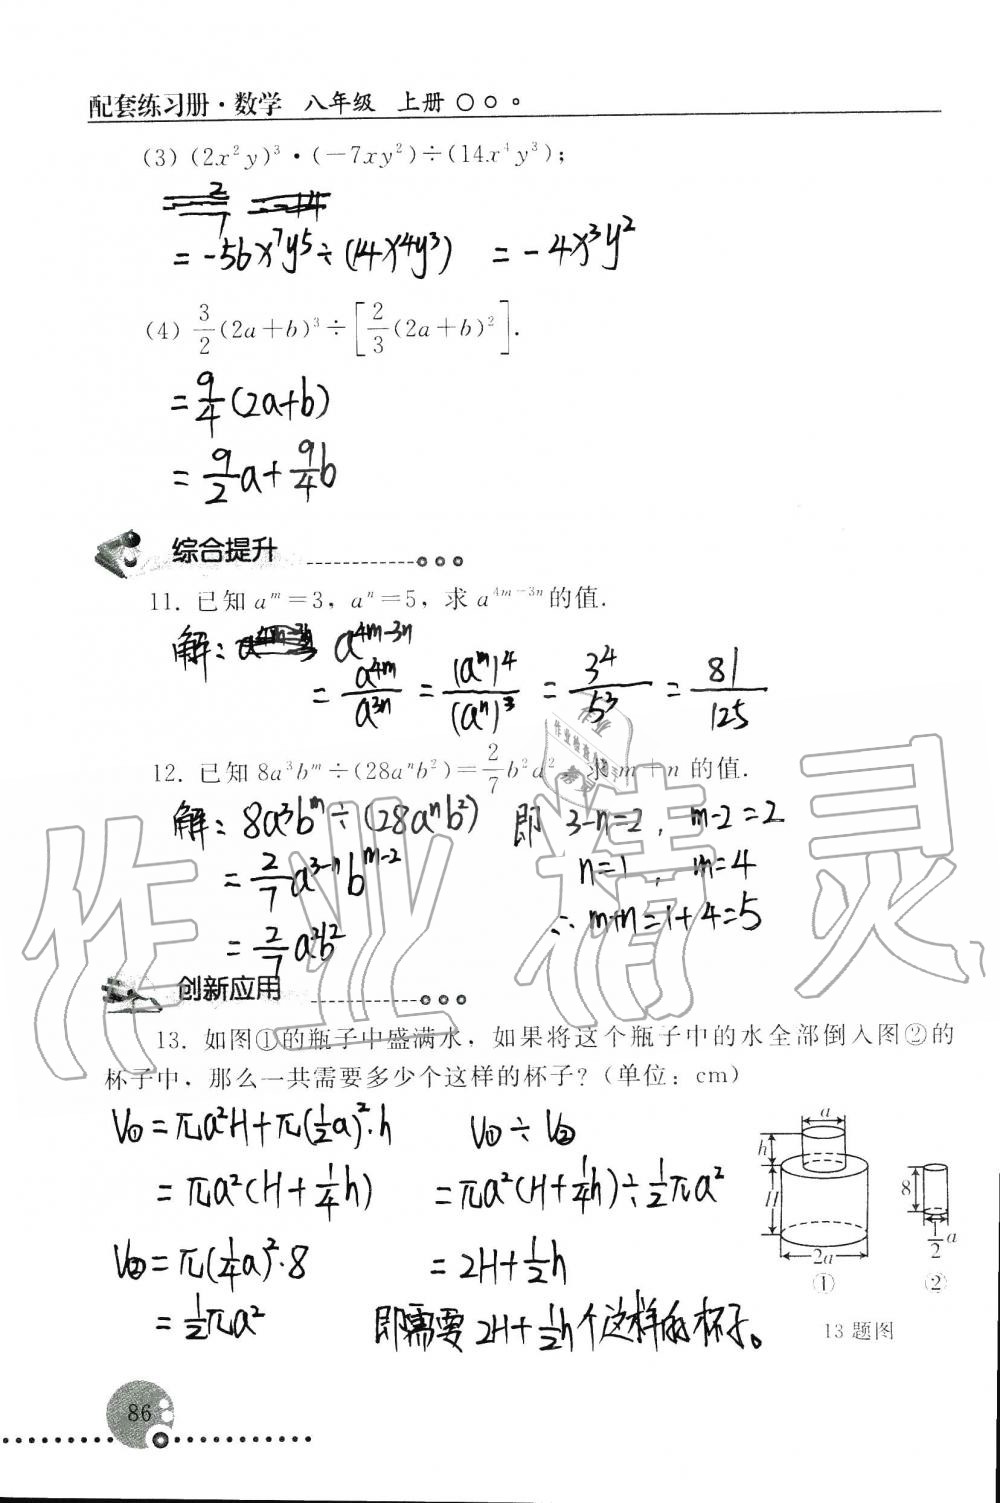 配套练习册·数学 八年级 上册
(3) (2x²y)³·(-7xy²)÷(14x⁴y³);
= -56x⁷y⁵÷(14x⁴y³) = -4x³y²
(4) 3/2(2a+b)³÷[2/3(2a+b)²].
= 9/4(2a+b)
= 9/2a+9/4b
综合提升
11. 已知 aᵐ=3, aⁿ=5, 求 a⁴ᵐ⁻³ⁿ的值.
解: a⁴ᵐ⁻³ⁿ
= a⁴ᵐ/a³ⁿ = (aᵐ)⁴/(aⁿ)³ = 3⁴/5³ = 81/125
12. 已知 8a³bᵐ÷(28aⁿb²)=2/7b²a², 求 m+n 的值.
解: 8a³bᵐ÷(28aⁿb²) 即 3-n=2, m-2=2
= 2/7a³⁻ⁿbᵐ⁻² n=1, m=4
∴ m+n=1+4=5
= 2/7a²b²
创新应用
13. 如图①的瓶子中盛满水, 如果将这个瓶子中的水全部倒入图②的
杯子中, 那么一共需要多少个这样的杯子? (单位: cm)
V①=πa²H+π(1/2a)²·h V①÷V②
=πa²(H+1/4h) =πa²(H+1/4h)÷1/2πa²
V②=π(1/4a)²·8 =2H+1/2h
=1/2πa² 即需要 2H+1/2h个这样的杯子。
a
h
H
2a
①
8
1/2a
②
13 题图
86
作业精灵